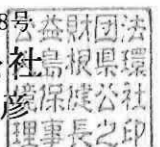 8号
公益財団法
人島根県環
社
境保健公社
彦
理事長之印